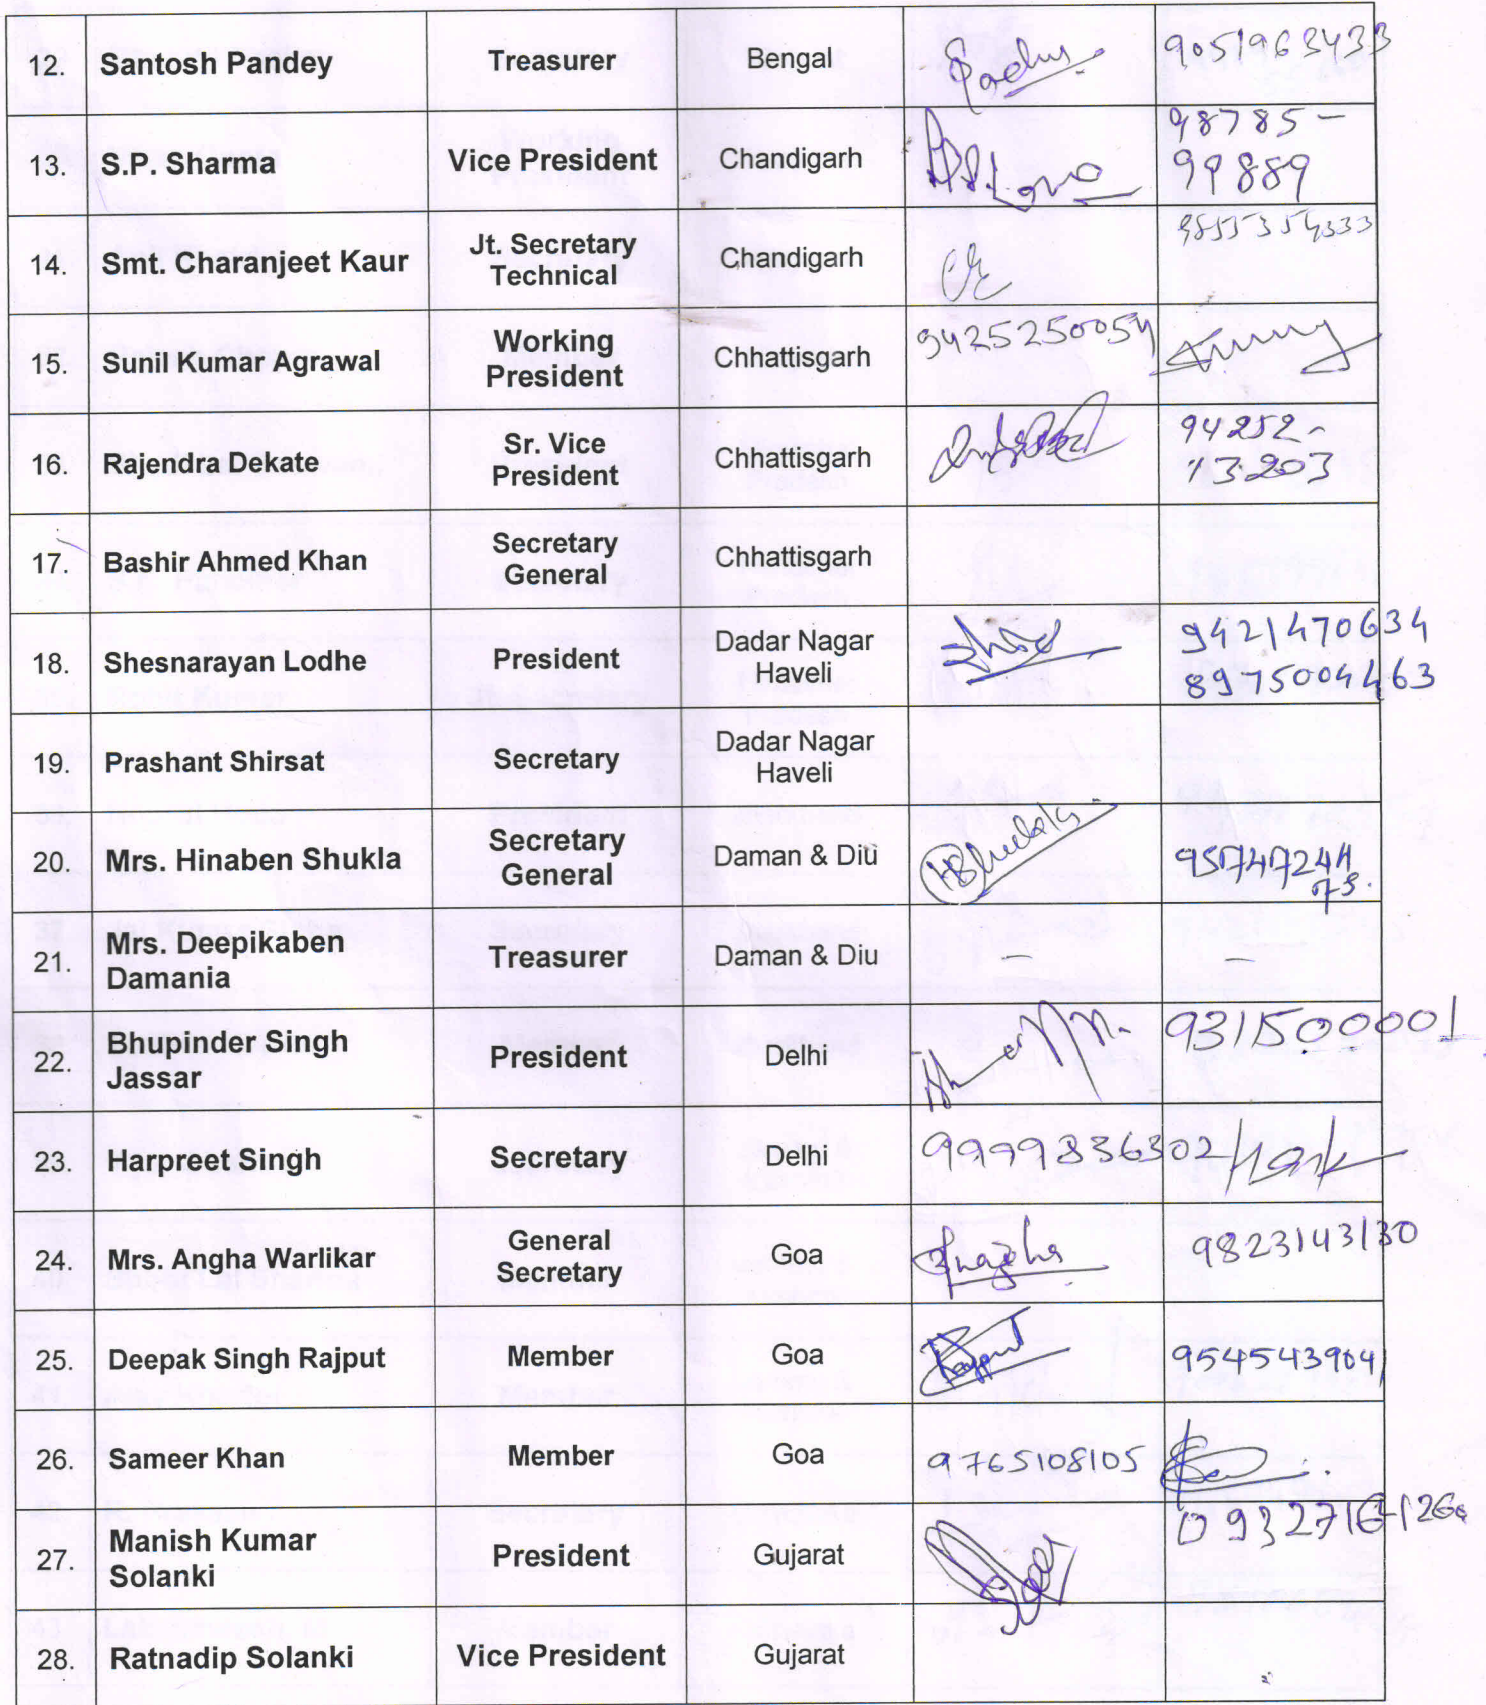 12. Santosh Pandey Treasurer Bengal 9051963433
13. S.P. Sharma Vice President Chandigarh 98785-
99889
14. Smt. Charanjeet Kaur Jt. Secretary
Technical Chandigarh
15. Sunil Kumar Agrawal Working
President Chhattisgarh 9425250054
16. Rajendra Dekate Sr. Vice
President Chhattisgarh 94252-
13203
17. Bashir Ahmed Khan Secretary
General Chhattisgarh
18. Shesnarayan Lodhe President Dadar Nagar
Haveli 9421470634
8975004463
19. Prashant Shirsat Secretary Dadar Nagar
Haveli
20. Mrs. Hinaben Shukla Secretary
General Daman & Diu
21. Mrs. Deepikaben
Damania Treasurer Daman & Diu — —
22. Bhupinder Singh
Jassar President Delhi 9315000001
23. Harpreet Singh Secretary Delhi 9999836302
24. Mrs. Angha Warlikar General
Secretary Goa 9823143130
25. Deepak Singh Rajput Member Goa 9545439041
26. Sameer Khan Member Goa 9765108105
27. Manish Kumar
Solanki President Gujarat
28. Ratnadip Solanki Vice President Gujarat